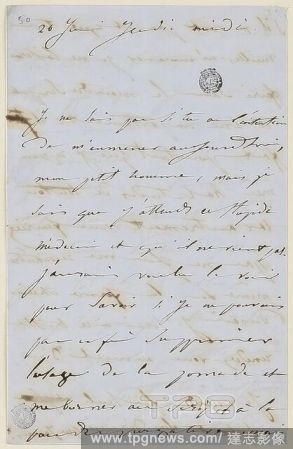 20
Jeudi midi
Je ne sais pas si tu as l'intention
de m'emmener aujourd'hui,
mon petit homme, mais je
sais que j'attends ce stupide
médecin et qu'il ne vient pas.
J'aurais voulu le voir
pour savoir si je ne pouvais
pas enfin supprimer
l'usage de la pomade et
me borner au à la
TPG
www.tpgnews.com / 達志影像